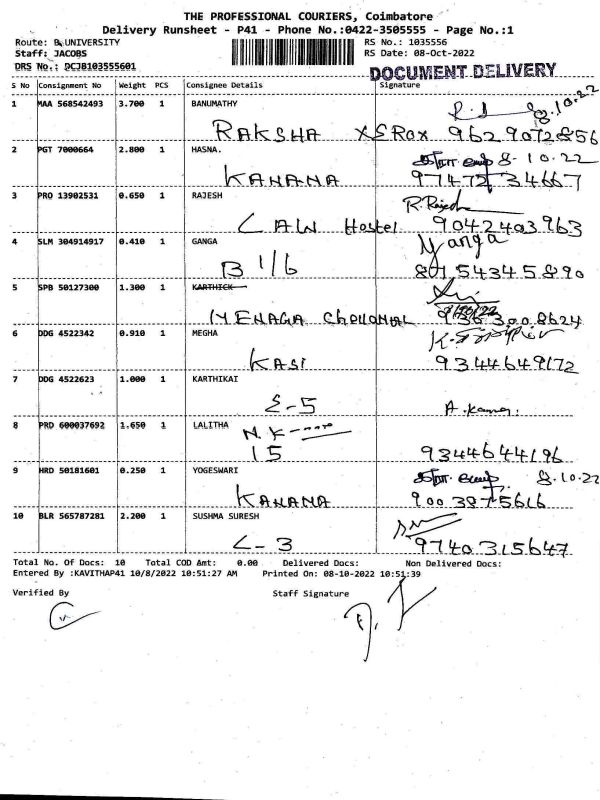 THE PROFESSIONAL COURIERS, Coimbatore
Delivery Runsheet - P41 - Phone No.:0422-3505555 - Page No.:1
Route: B.UNIVERSITY RS No.: 1035556
Staff: JACOBS RS Date: 08-Oct-2022
DRS No.: DCJB103555601
DOCUMENT DELIVERY
S No Consignment No Weight PCS Consignee Details Signature
1 MAA 568542493 3.700 1 BANUMATHY
8.10.22
RAKSHA XEROX 9629072856
2 PGT 7000664 2.800 1 HASNA.
8-10-22
KANANA 9747234667
3 PRO 13902531 0.650 1 RAJESH R.Rajesh
LAW Hostel 9042403963
4 SLM 304914917 0.410 1 GANGA Ganga
B 1/6 80154345890
5 SPB 50127300 1.300 1 KARTHICK
MENAGA
6 DDG 4522342 0.910 1 MEGHA
KASI 9344649172
7 DDG 4522623 1.000 1 KARTHIKAI
E-5
8 PRD 600037692 1.650 1 LALITHA
N.K
15 9344644196
9 HRD 50181601 0.250 1 YOGESWARI
8.10.22
KANANA 9003975616
10 BLR 565787281 2.200 1 SUSHMA SURESH
L-3 9740315647
Total No. Of Docs: 10 Total COD Amt: 0.00 Delivered Docs: Non Delivered Docs:
Entered By :KAVITHAP41 10/8/2022 10:51:27 AM Printed On: 08-10-2022 10:51:39
Verified By Staff Signature